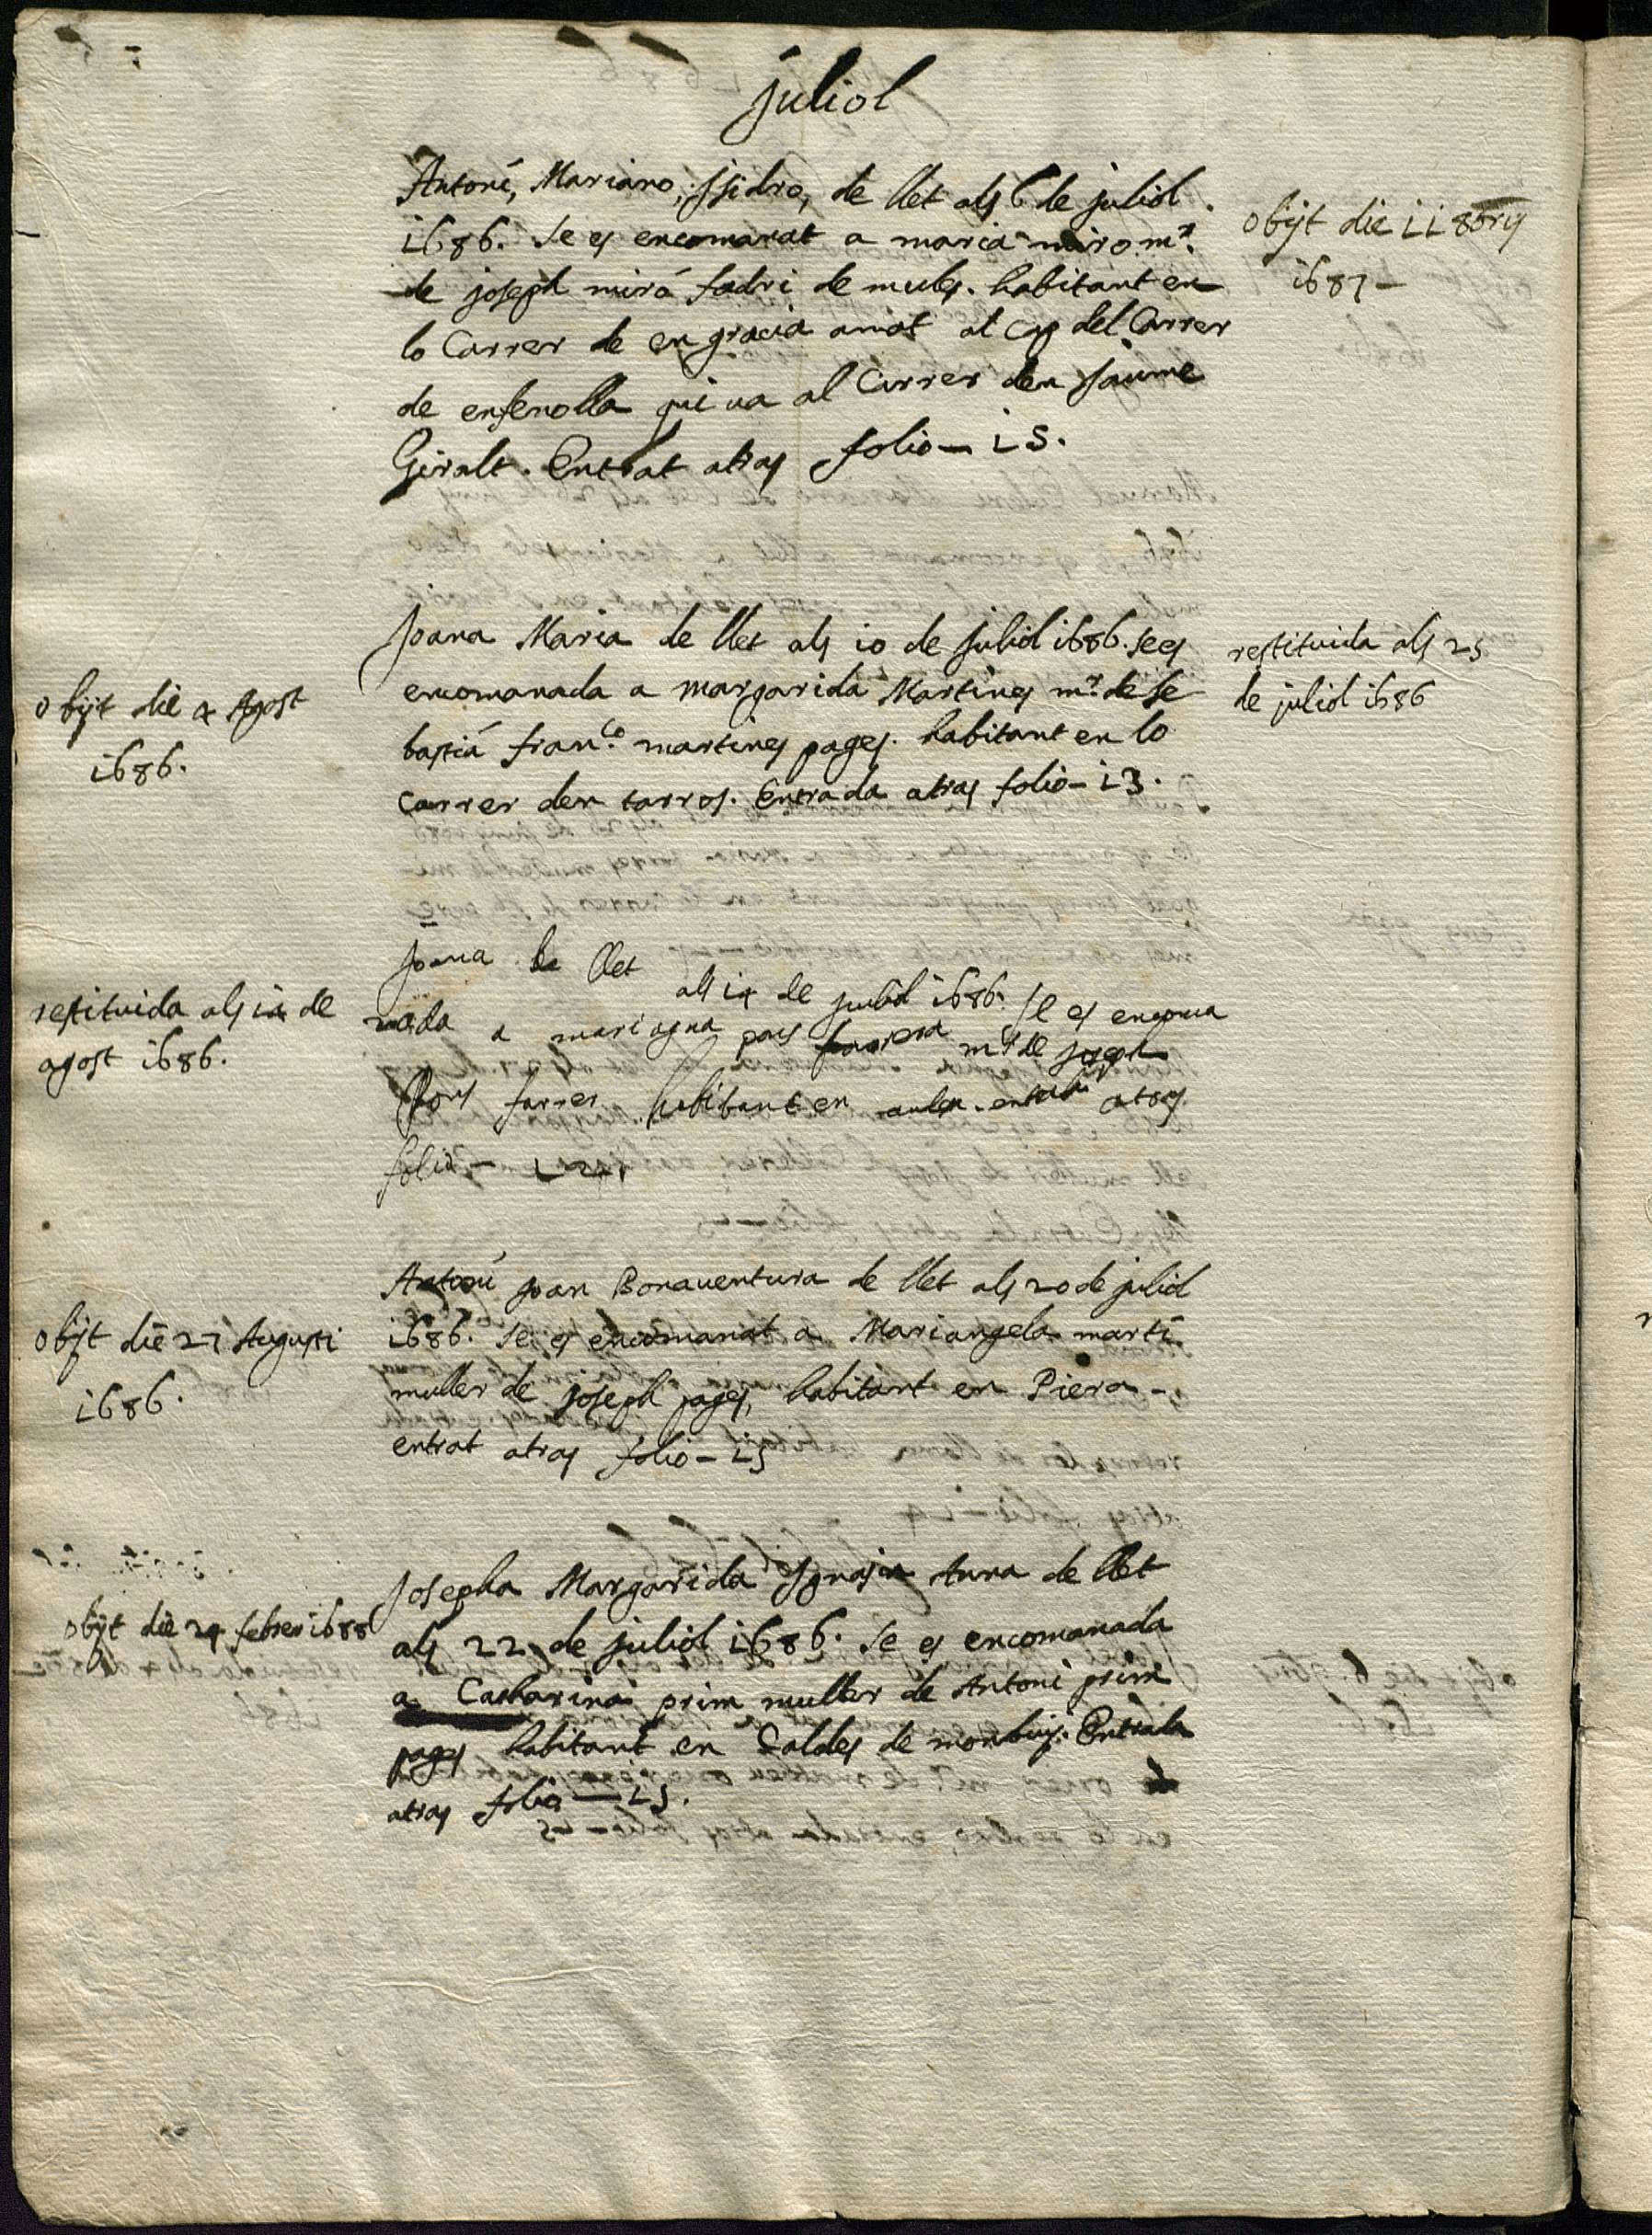 juliol
Antoni, Mariano, Isidro, de llet als 6 de juliol
1686. Se es encomanat a maria miro mr.
de joseph miró fadri de mules. habitant en
lo Carrer de en gracia amat al cap del Carrer
de enfenolla qui va al Carrer den Jaume
Giralt. Entrat atras folio — 15.
obijt die 11 8bris
1687 —
Joana Maria de llet als 10 de juliol 1686. se es
encomanada a margarida Martines mr. de Se
bastiá franco. martines pages. habitant en lo
carrer den tarros. Entrada atras folio — 13.
obijt die 4 Agost
1686.
restituida als 25
de juliol 1686
Joana de llet als 14 de juliol 1686. Se es encoma
nada a mariagna pous mr. de joseph
Pous farrer habitant en atras
folio —
restituida als 14 de
agost 1686.
Antoni joan Bonaventura de llet als 20 de juliol
1686. Se es encomanat a Mariangela martí
muller de joseph pages, habitant en Piera —
entrat atras folio — 15
obijt die 27 Augusti
1686.
Josepha Margarida Ignasia tura de llet
als 22 de juliol 1686. Se es encomanada
a Catharina prim muller de Antoni prim
pages habitant en Caldes de monbuy. Entrada
atras folio — 15.
obijt die 24 febrer 1688